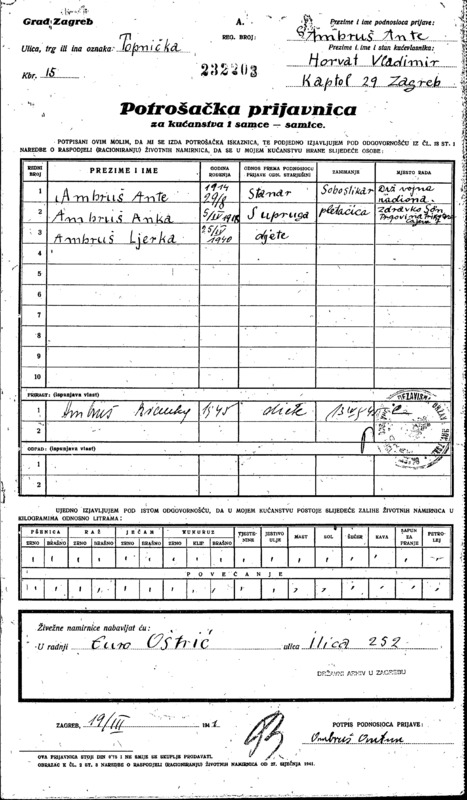 Grad Zagreb
A.
REG. BROJ:
232203
Prezime i ime podnosioca prijave:
Ambruš Ante
Prezime i ime i stan kućevlasnika:
Horvat Vladimir
Kaptol 29 Zagreb
Ulica, trg ili ina oznaka: Topnička
Kbr. 15
Potrošačka prijavnica
za kućanstva i samce — samice.
POTPISANI OVIM MOLIM, DA MI SE IZDA POTROŠAČKA ISKAZNICA, TE PODJEDNO IZJAVLJUJEM POD ODGOVORNOŠĆU IZ ČL. 18 ST. 1
NAREDBE O RASPODJELI (RACIONIRANJU) ŽIVOTNIH NAMIRNICA, DA SE U MOJEM KUĆANSTVU HRANE SLIJEDEĆE OSOBE:
REDNI BROJ PREZIME I IME GODINA ROĐENJA ODNOS PREMA PODNOSIOCU PRIJAVE ODN. STARJEŠINI ZANIMANJE MJESTO RADA
1 Ambruš Ante 1914 29/8 Stanar Soboslikar Drž vojna radiona
2 Ambruš Anka 5/IV 1918 Supruga pletačica Zdravko
3 Ambruš Ljerka 25/IV 1940 dijete
4
5
6
7
8
9
10
PRIRAST: (ispunjava vlast)
1 Ambruš 1945 diete
2
NEZAVISNA DRŽAV
ODPAD: (ispunjava vlast)
1
2
UJEDNO IZJAVLJUJEM POD ISTOM ODGOVORNOŠĆU, DA U MOJEM KUĆANSTVU POSTOJE SLIJEDEĆE ZALIHE ŽIVOTNIH NAMIRNICA U
KILOGRAMIMA ODNOSNO LITRAMA:
PŠENICA RAŽ JEČAM KUKURUZ TJESTENINE JESTIVO ULJE MAST SOL ŠEĆER KAVA SAPUN ZA PRANJE PETROLEJ
ZRNO BRAŠNO ZRNO BRAŠNO ZRNO BRAŠNO ZRNO KLIP BRAŠNO
POVEĆANJE
Živežne namirnice nabavljat ću:
U radnji Đuro Oštrić ulica Ilica 252
DRŽAVNI ARHIV U ZAGREBU
ZAGREB, 19/III 1941
POTPIS PODNOSIOCA PRIJAVE:
Ambruš Antun
OVA PRIJAVNICA STOJI DIN 0'75 I NE SMIJE SE SKUPLJE PRODAVATI.
OBRAZAC K ČL. 2 ST. 3 NAREDBE O RASPODJELI (RACIONIRANJU) ŽIVOTNIH NAMIRNICA OD 27. SIJEČNJA 1941.